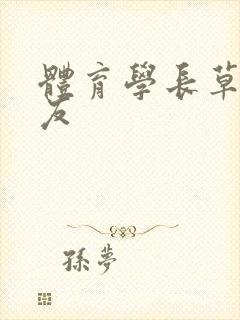 體育學長草
友
孫夢